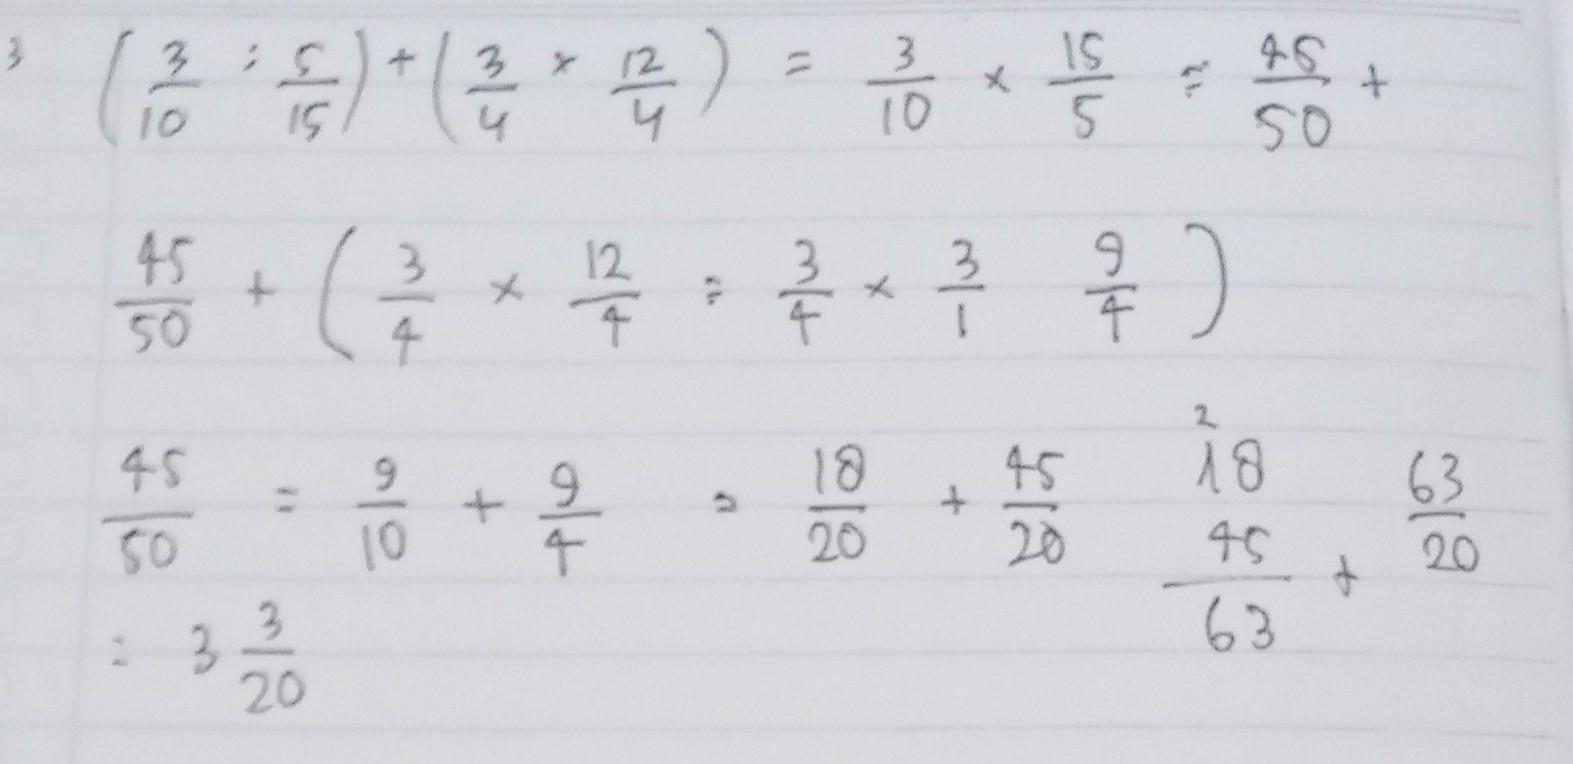 3 (3/10 : 5/15) + (3/4 × 12/4) = 3/10 × 15/5 = 45/50 +
45/50 + (3/4 × 12/4 = 3/4 × 3/1 9/4)
45/50 = 9/10 + 9/4 = 18/20 + 45/20 2 18 45 + 63 63/20
= 3 3/20